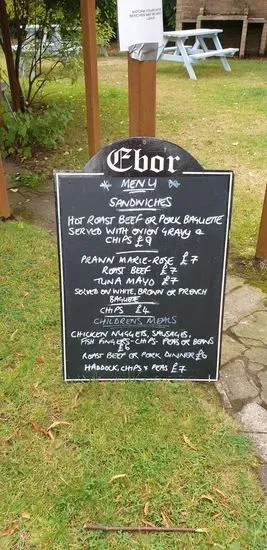 Ebor
MENU
SANDWICHES
HOT ROAST BEEF OR PORK BAGUETTE
SERVED WITH ONION GRAVY &
CHIPS £9
PRAWN MARIE-ROSE £7
ROAST BEEF £7
TUNA MAYO £7
SERVED ON WHITE, BROWN OR FRENCH
BAGUETTE
CHIPS £4
CHILDRENS MEALS
CHICKEN NUGGETS, SAUSAGES,
FISH FINGERS - CHIPS - PEAS OR BEANS
£6
ROAST BEEF OR PORK DINNER £6
HADDOCK, CHIPS & PEAS £7